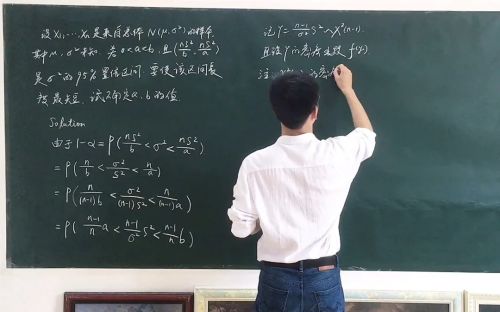 设 X₁,…,Xₙ是来自总体 N(μ,σ²) 的样本,
其中 μ, σ² 未知. 若 0<a<b, 且 (nS²/b, nS²/a)
是 σ² 的 95% 置信区间. 要使该区间长
度最大, 试确定 a, b 的值.
Solution
由于 1-α = P(nS²/b < σ² < nS²/a)
= P(n/b < σ²/S² < n/a)
= P(n/(n-1)b < σ²/(n-1)S² < n/(n-1)a)
= P(n-1/n a < n-1/σ² S² < n-1/n b)
记 Y = n-1/σ² S² ~ χ²(n-1).
且设 Y 的密度函数 f(y).
注:
的密